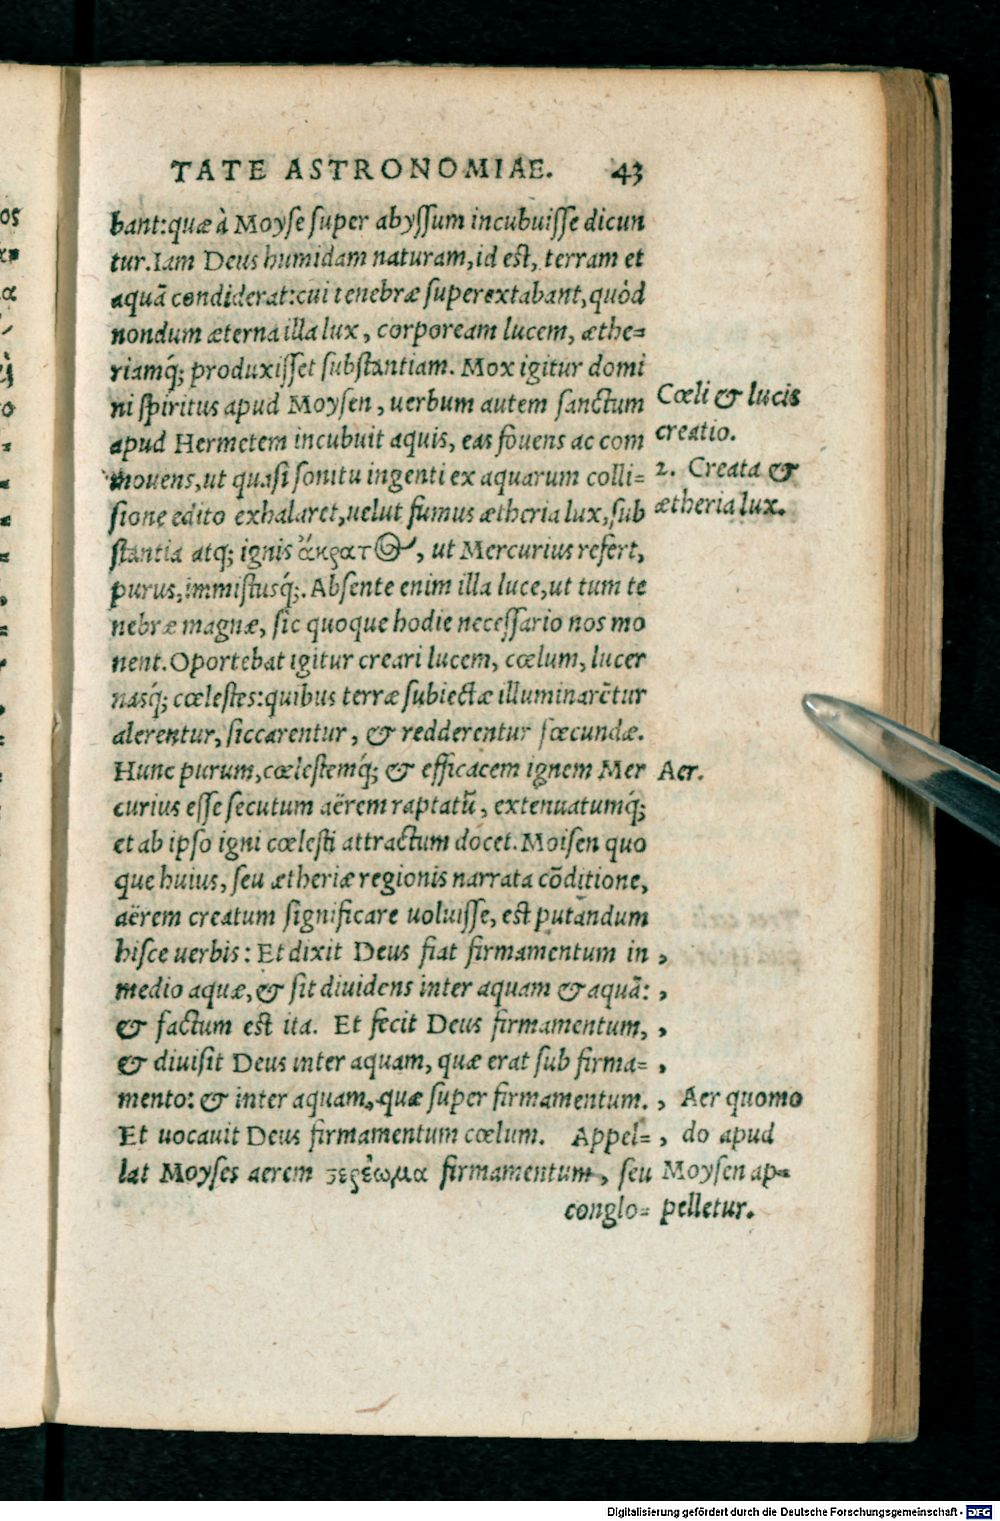 TATE ASTRONOMIAE. 43
bant:quæ à Moyse super abyssum incubuisse dicun
tur.Iam Deus humidam naturam,id est, terram et
aquã condiderat:cui tenebræ superextabant,quòd
nondum æterna illa lux, corpoream lucem, æthe=
riamq́; produxisset substantiam. Mox igitur domi
ni spiritus apud Moysen, uerbum autem sanctum
apud Hermetem incubuit aquis, eas fouens ac com
mouens,ut quasi sonitu ingenti ex aquarum colli=
sione edito exhalaret,uelut fumus ætheria lux,sub
stantia atq; ignis ἄκρατος, ut Mercurius refert,
purus,immistusq́;. Absente enim illa luce,ut tum te
nebræ magnæ, sic quoque hodie necessario nos mo
nent.Oportebat igitur creari lucem, cœlum, lucer
nasq́; cœlestes:quibus terræ subiectæ illuminarẽtur
alerentur,siccarentur, & redderentur fœcundæ.
Hunc purum,cœlestemq́; & efficacem ignem Mer
curius esse secutum aërem raptatũ, extenuatumq́;
et ab ipso igni cœlesti attractum docet. Moisen quo
que huius, seu ætheriæ regionis narrata cõditione,
aërem creatum significare uoluisse, est putandum
hisce uerbis: Et dixit Deus fiat firmamentum in ,
medio aquæ, & sit diuidens inter aquam & aquã: ,
& factum est ita. Et fecit Deus firmamentum, ,
& diuisit Deus inter aquam, quæ erat sub firma= ,
mento: & inter aquam, quæ super firmamentum. ,
Et uocauit Deus firmamentum cœlum. Appel= ,
lat Moyses aerem ςερέωμα firmamentum, seu
conglo=
Cœli & lucis
creatio.
2. Creata &
ætheria lux.
Aer.
Aer quomo
do apud
Moysen ap=
pelletur.
Digitalisierung gefördert durch die Deutsche Forschungsgemeinschaft - DFG